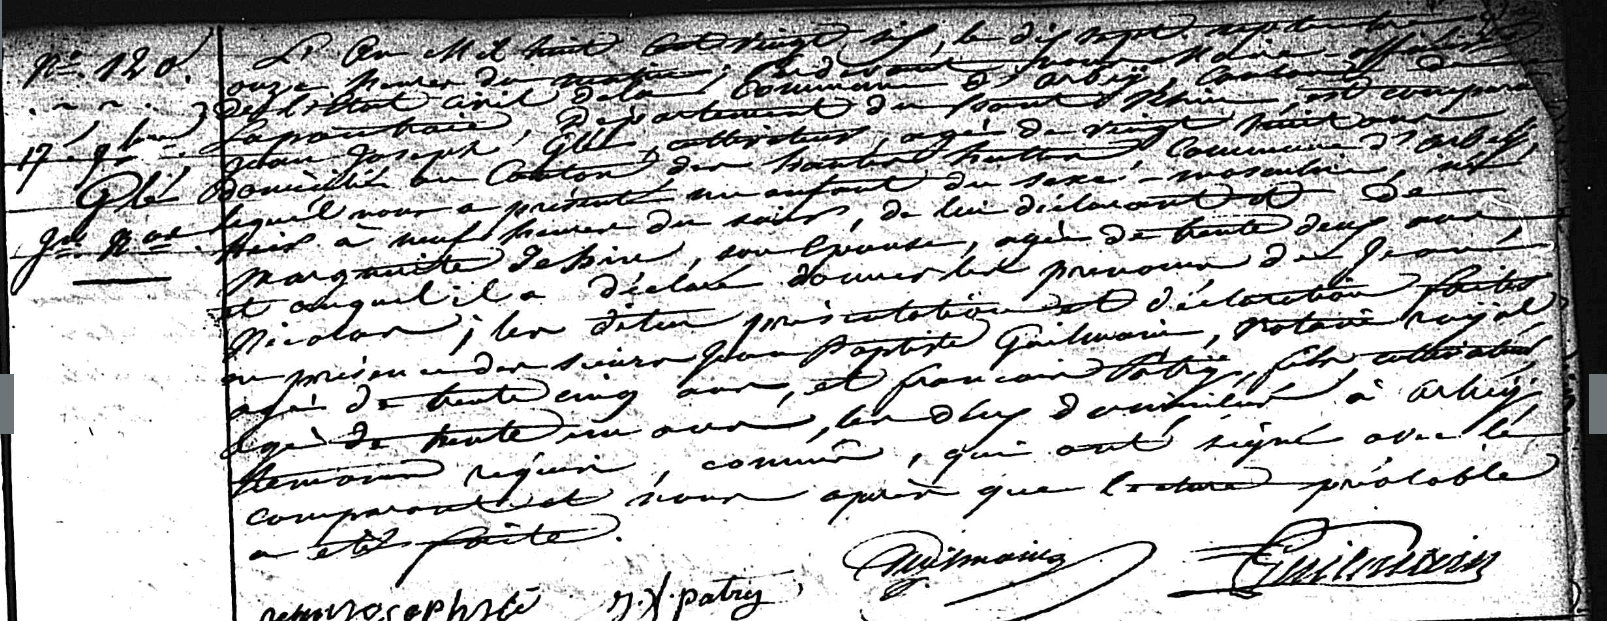 N.º 120.
17. 7bre.
Glé
Jn. Nas
L'An Mil huit Cent vingt six, le dix sept septembre
onze heures du matin, Pardevant nous Maire officier
de l'état civil de la Commune d'Orbey, Canton de
Lapoutroie, Département du haut Rhin, est comparu
Jean Joseph Glé, cultivateur, agé de vingt huit ans
domicilié au Canton des hautes huttes, Commune d'Orbey,
lequel nous a présenté un enfant du sexe masculin, né
hier à neuf heures du soir, de lui déclarant et de
Marguerite, son Epouse, agée de trente deux ans
et auquel il a déclaré donner les prenoms de Jean
Nicolas; les dites présentation et déclaration faites
en présence des sieurs Jean Baptiste Guilmain, Notaire royal
agé de trente cinq ans, et francois Patry, fils, cultivateur,
agé de trente un ans, les deux domiciliés à Orbey,
temoins requis, qui ont signé avec le
comparant et nous après que lecture préalable
a été faite.
Guilmain
Guilmain
jean joseph Glé J. f. patry